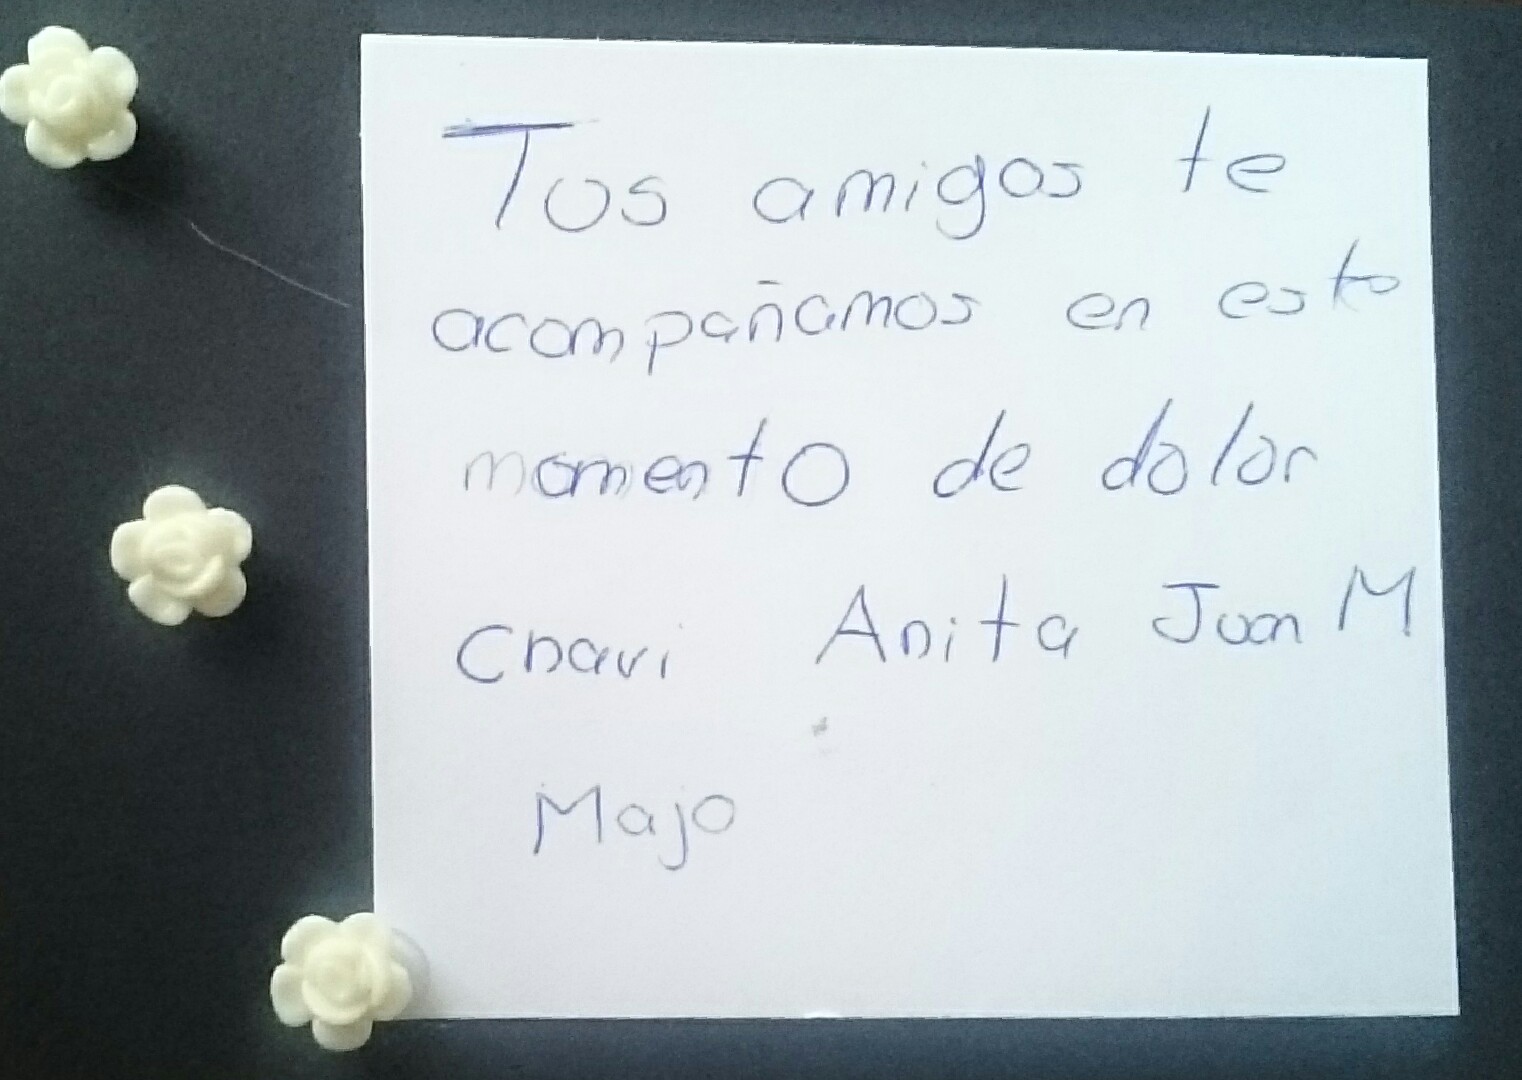 Tus amigos te
acompañamos en esto
momento de dolor
Chavi Anita Juan M
Majo